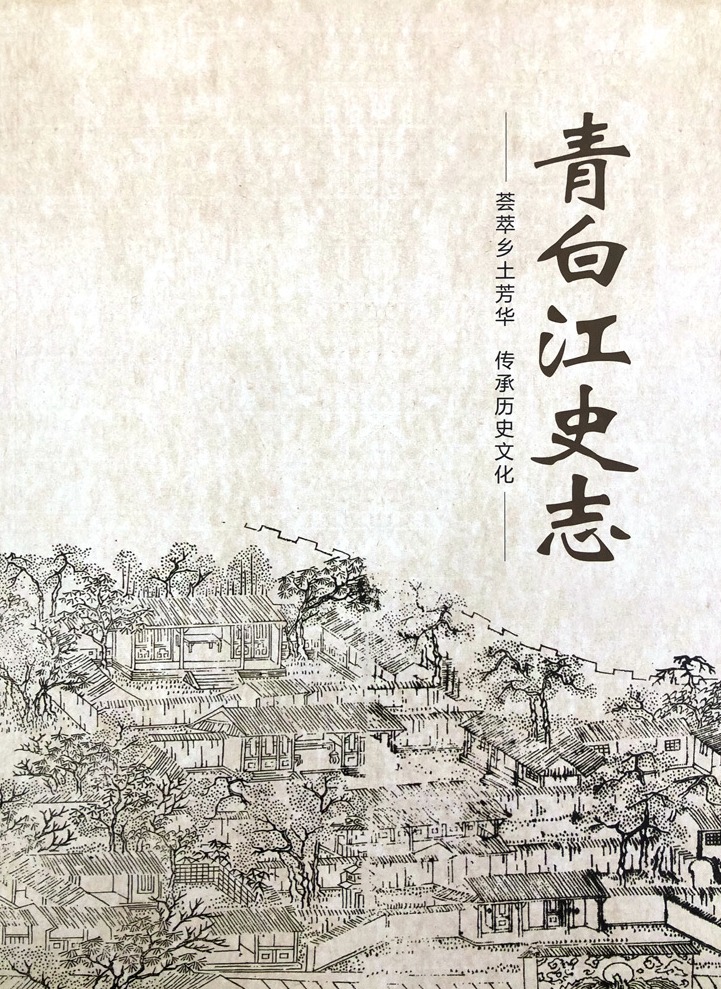 青白江史志
荟萃乡土芳华 传承历史文化